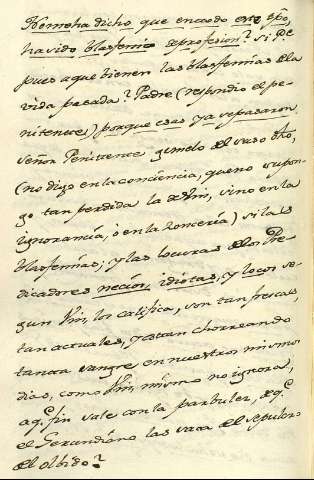 Hermoha dicho que en todo este tpo,
ha vido blasfemia de profesion? Si Pe
pues a que tienen las blasfemias de la
vida pasada? Padre (respondio el pe-
nitente) porque esas ya se pasaron.
Señor Penitente gemelo del suso dho,
(no digo en la conciencia, que no supon-
go tan perdida la de Vm, sino en la
ignorancia, ò en la zonceria) si las
blasfemias; y las locuras de los Pre-
dicadores necios, idiotas, y locos se-
gun Vm, los califica, son tan frescas,
tan actuales, y estan chorreando
tanta sangre en nuestros mismos
dias, como Vm, mismo no ignora,
a q.e fin sale con la parbuler, de q.e
el Gerundiano las saca del sepulcro
del olbido?